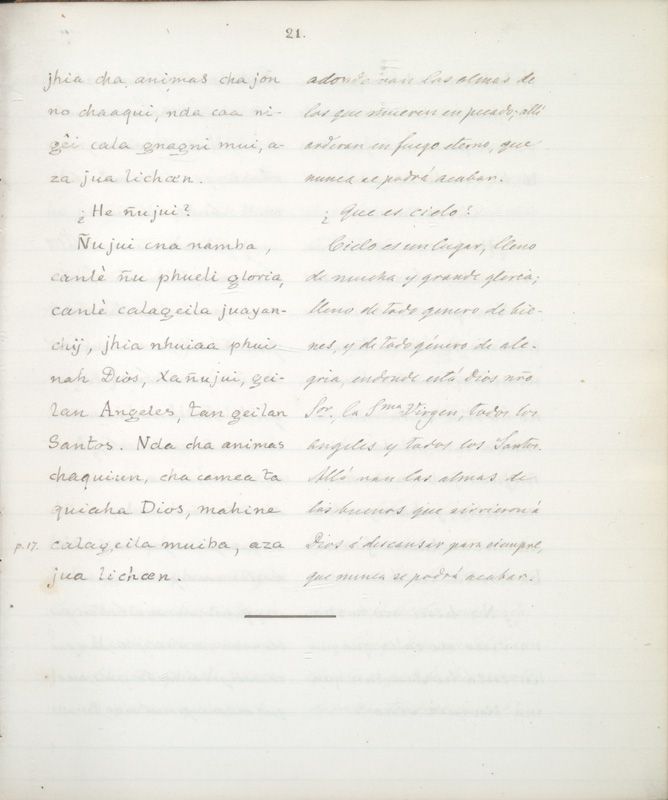 21.
jhia cha animas chajón
no chaaqui, nda caa ni-
gèi cala gnagni mui, a-
za jua lichœn.
¿He ñujui?
Ñujui cna namba,
canlè ñu phueli gloria,
canlè calageila juayan-
chij, jhia nhuiaa phui
nah Diòs, Xañujui, gei-
lan Angeles, tan geilan
Santos. Nda cha animas
chaquiun, cha camea ta
quicaha Dios, mahine
p. 17. calageila muiba, aza
jua lichœn.
adonde van las almas de
los que mueren en pecado; allí
arderan en fuego eterno, que
nunca se podrá acabar.
¿Que es cielo?
Cielo es un lugar, lleno
de mucha y grande gloria;
lleno de todo genero de bie-
nes, y de todo género de ale-
gria, endonde está Dios nṙo
Sor, la Sma Virgen, todos los
angeles y todos los Santos.
Allá van las almas de
los buenos que sirvieron á
Dios á descansar para siempre,
que nunca se podrá acabar.